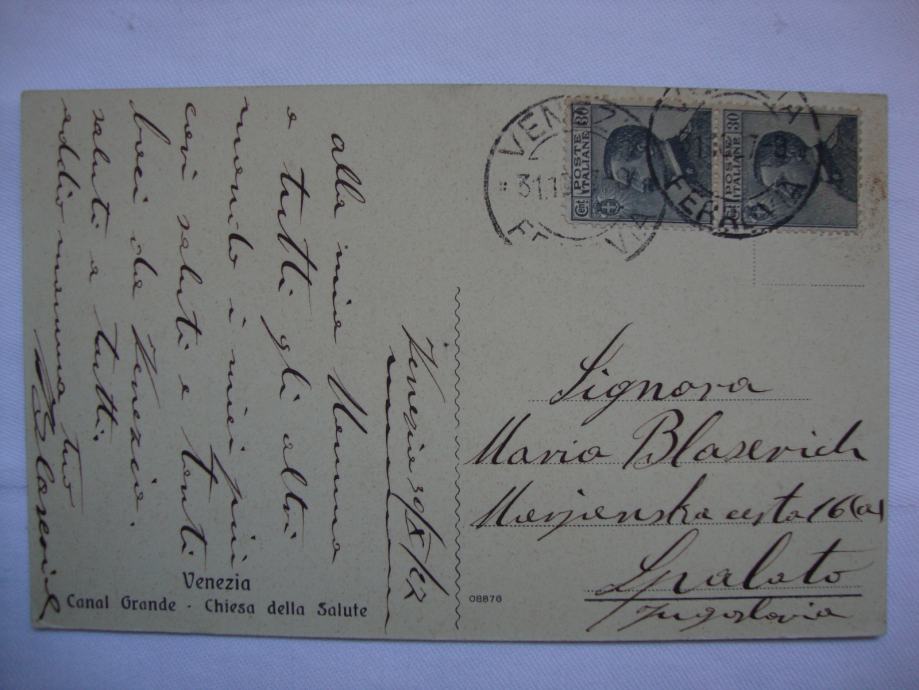 Venezia 30/X/
alla mia Nonna
e tutti gli altri
mando i miei più
cari saluti e tanti
baci da Venezia.
saluti a tutti.
addio nonna tuo
POSTE ITALIANE
Cent 30
POSTE ITALIANE
30
VENEZIA
31.1
FERROVIA
FERROVIA
Signora
Maria Blasevich
Marjanska cesta 16(a)
Spalato
Jugoslavia
Venezia
Canal Grande - Chiesa della Salute
08876